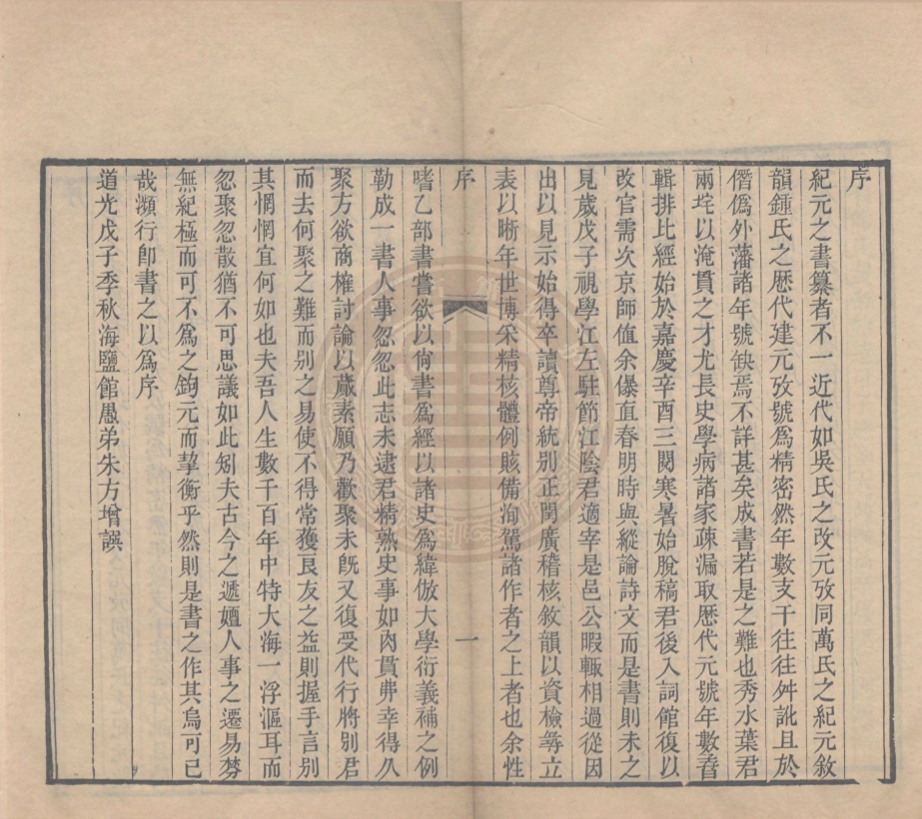 序
紀元之書纂者不一近代如吳氏之改元攷同萬氏之紀元敘
韻鍾氏之歷代建元攷號爲精密然年數支干往往舛訛且於
僭僞外藩諸年號缺焉不詳甚矣成書若是之難也秀水葉君
兩垞以淹貫之才尤長史學病諸家疎漏取歷代元號年數
輯排比經始於嘉慶辛酉三閱寒暑始脫稿君後入詞館復以
改官需次京師值余儤直春明時與縱論詩文而是書則未之
見歲戊子視學江左駐節江陰君適宰是邑公暇輒相過從因
出以見示始得卒讀尊帝統別正閏廣稽核敘韻以資檢彝立
表以晣年世博采精核體例賅備洵駕諸作者之上者也余性
序
一
嗜乙部書嘗欲以尙書爲經以諸史爲緯倣大學衍義補之例
勒成一書人事忽忽此志未逮君精熟史事如肉貫弗幸得久
聚方欲商榷討論以蕆素願乃歡聚未旣又復受代行將別君
而去何聚之難而别之易使不得常獲良友之益則握手言别
其惘惘宜何如也夫吾人生數千百年中特大海一浮漚耳而
忽聚忽散猶不可思議如此矧夫古今之遞嬗人事之遷易棼
無紀極而可不爲之鉤元而挈衡乎然則是書之作其烏可已
哉瀕行卽書之以爲序
道光戊子季秋海鹽館愚弟朱方增譔